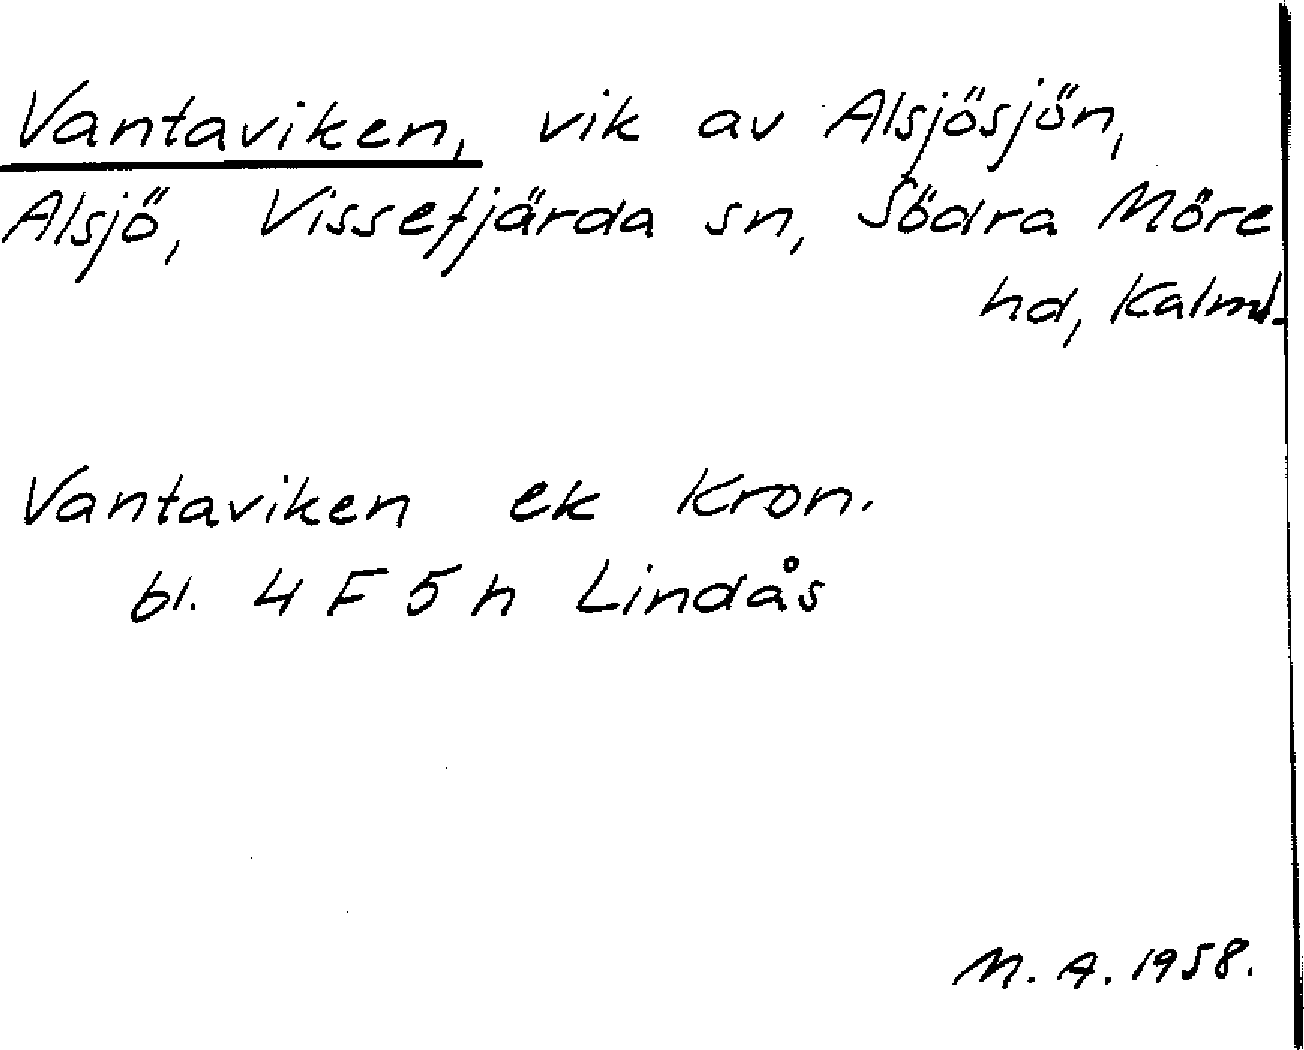 Vantaviken, vik av Alsjösjön,
Alsjö, Vissefjärda sn, Södra Möre
hd, Kalml.
Vantaviken ek Kron.
bl. 4 F 5 h Lindås
M. A. 1958.